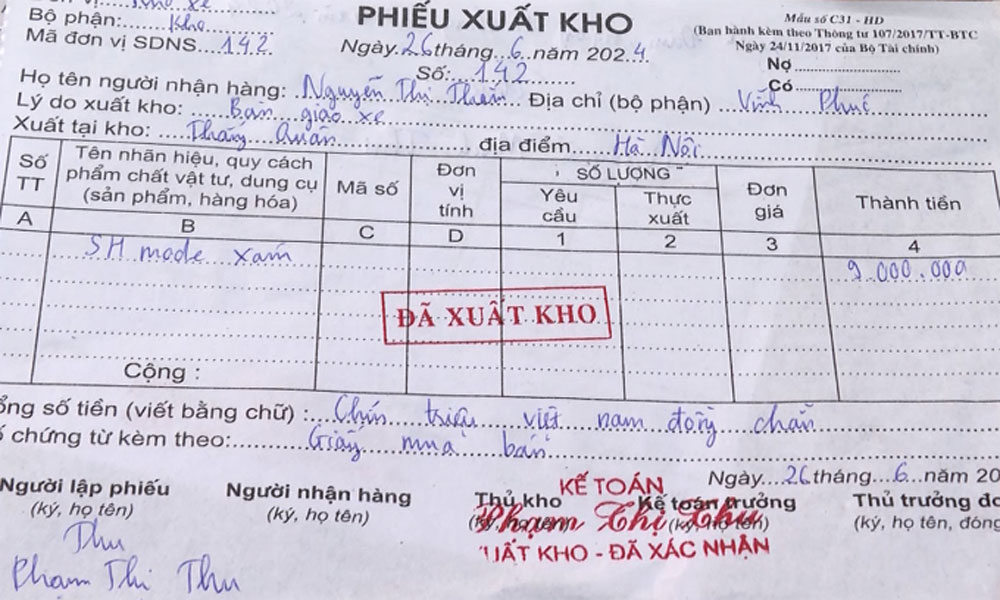 Kho xe
Bộ phận: Kho
Mã đơn vị SDNS 142
PHIẾU XUẤT KHO
Ngày 26 tháng 6 năm 2024
Số: 142
Mẫu số C31 - HD
(Ban hành kèm theo Thông tư 107/2017/TT-BTC
Ngày 24/11/2017 của Bộ Tài chính)
Nợ
Có
Họ tên người nhận hàng: Nguyễn Thị Địa chỉ (bộ phận) Vĩnh Phúc
Lý do xuất kho: Bàn giao xe
Xuất tại kho: địa điểm Hà Nội
Số TT
Tên nhãn hiệu, quy cách
phẩm chất vật tư, dung cụ
(sản phẩm, hàng hóa)
Mã số
Đơn vị tính
SỐ LƯỢNG
Yêu cầu
Thực xuất
Đơn giá
Thành tiền
A B C D 1 2 3 4
SH mode xám 9.000.000
ĐÃ XUẤT KHO
Cộng :
ổng số tiền (viết bằng chữ) : Chín triệu việt nam đồng chẵn
chứng từ kèm theo: Giấy mua bán
Ngày 26 tháng 6 năm 20
Người lập phiếu
(ký, họ tên)
Người nhận hàng
(ký, họ tên)
Thủ kho
(ký, họ tên)
Kế toán trưởng
(ký, họ tên)
Thủ trưởng đơ
(ký, họ tên, đóng
KẾ TOÁN
Phạm Thị Thu
XUẤT KHO - ĐÃ XÁC NHẬN
Thu
Phạm Thi Thu